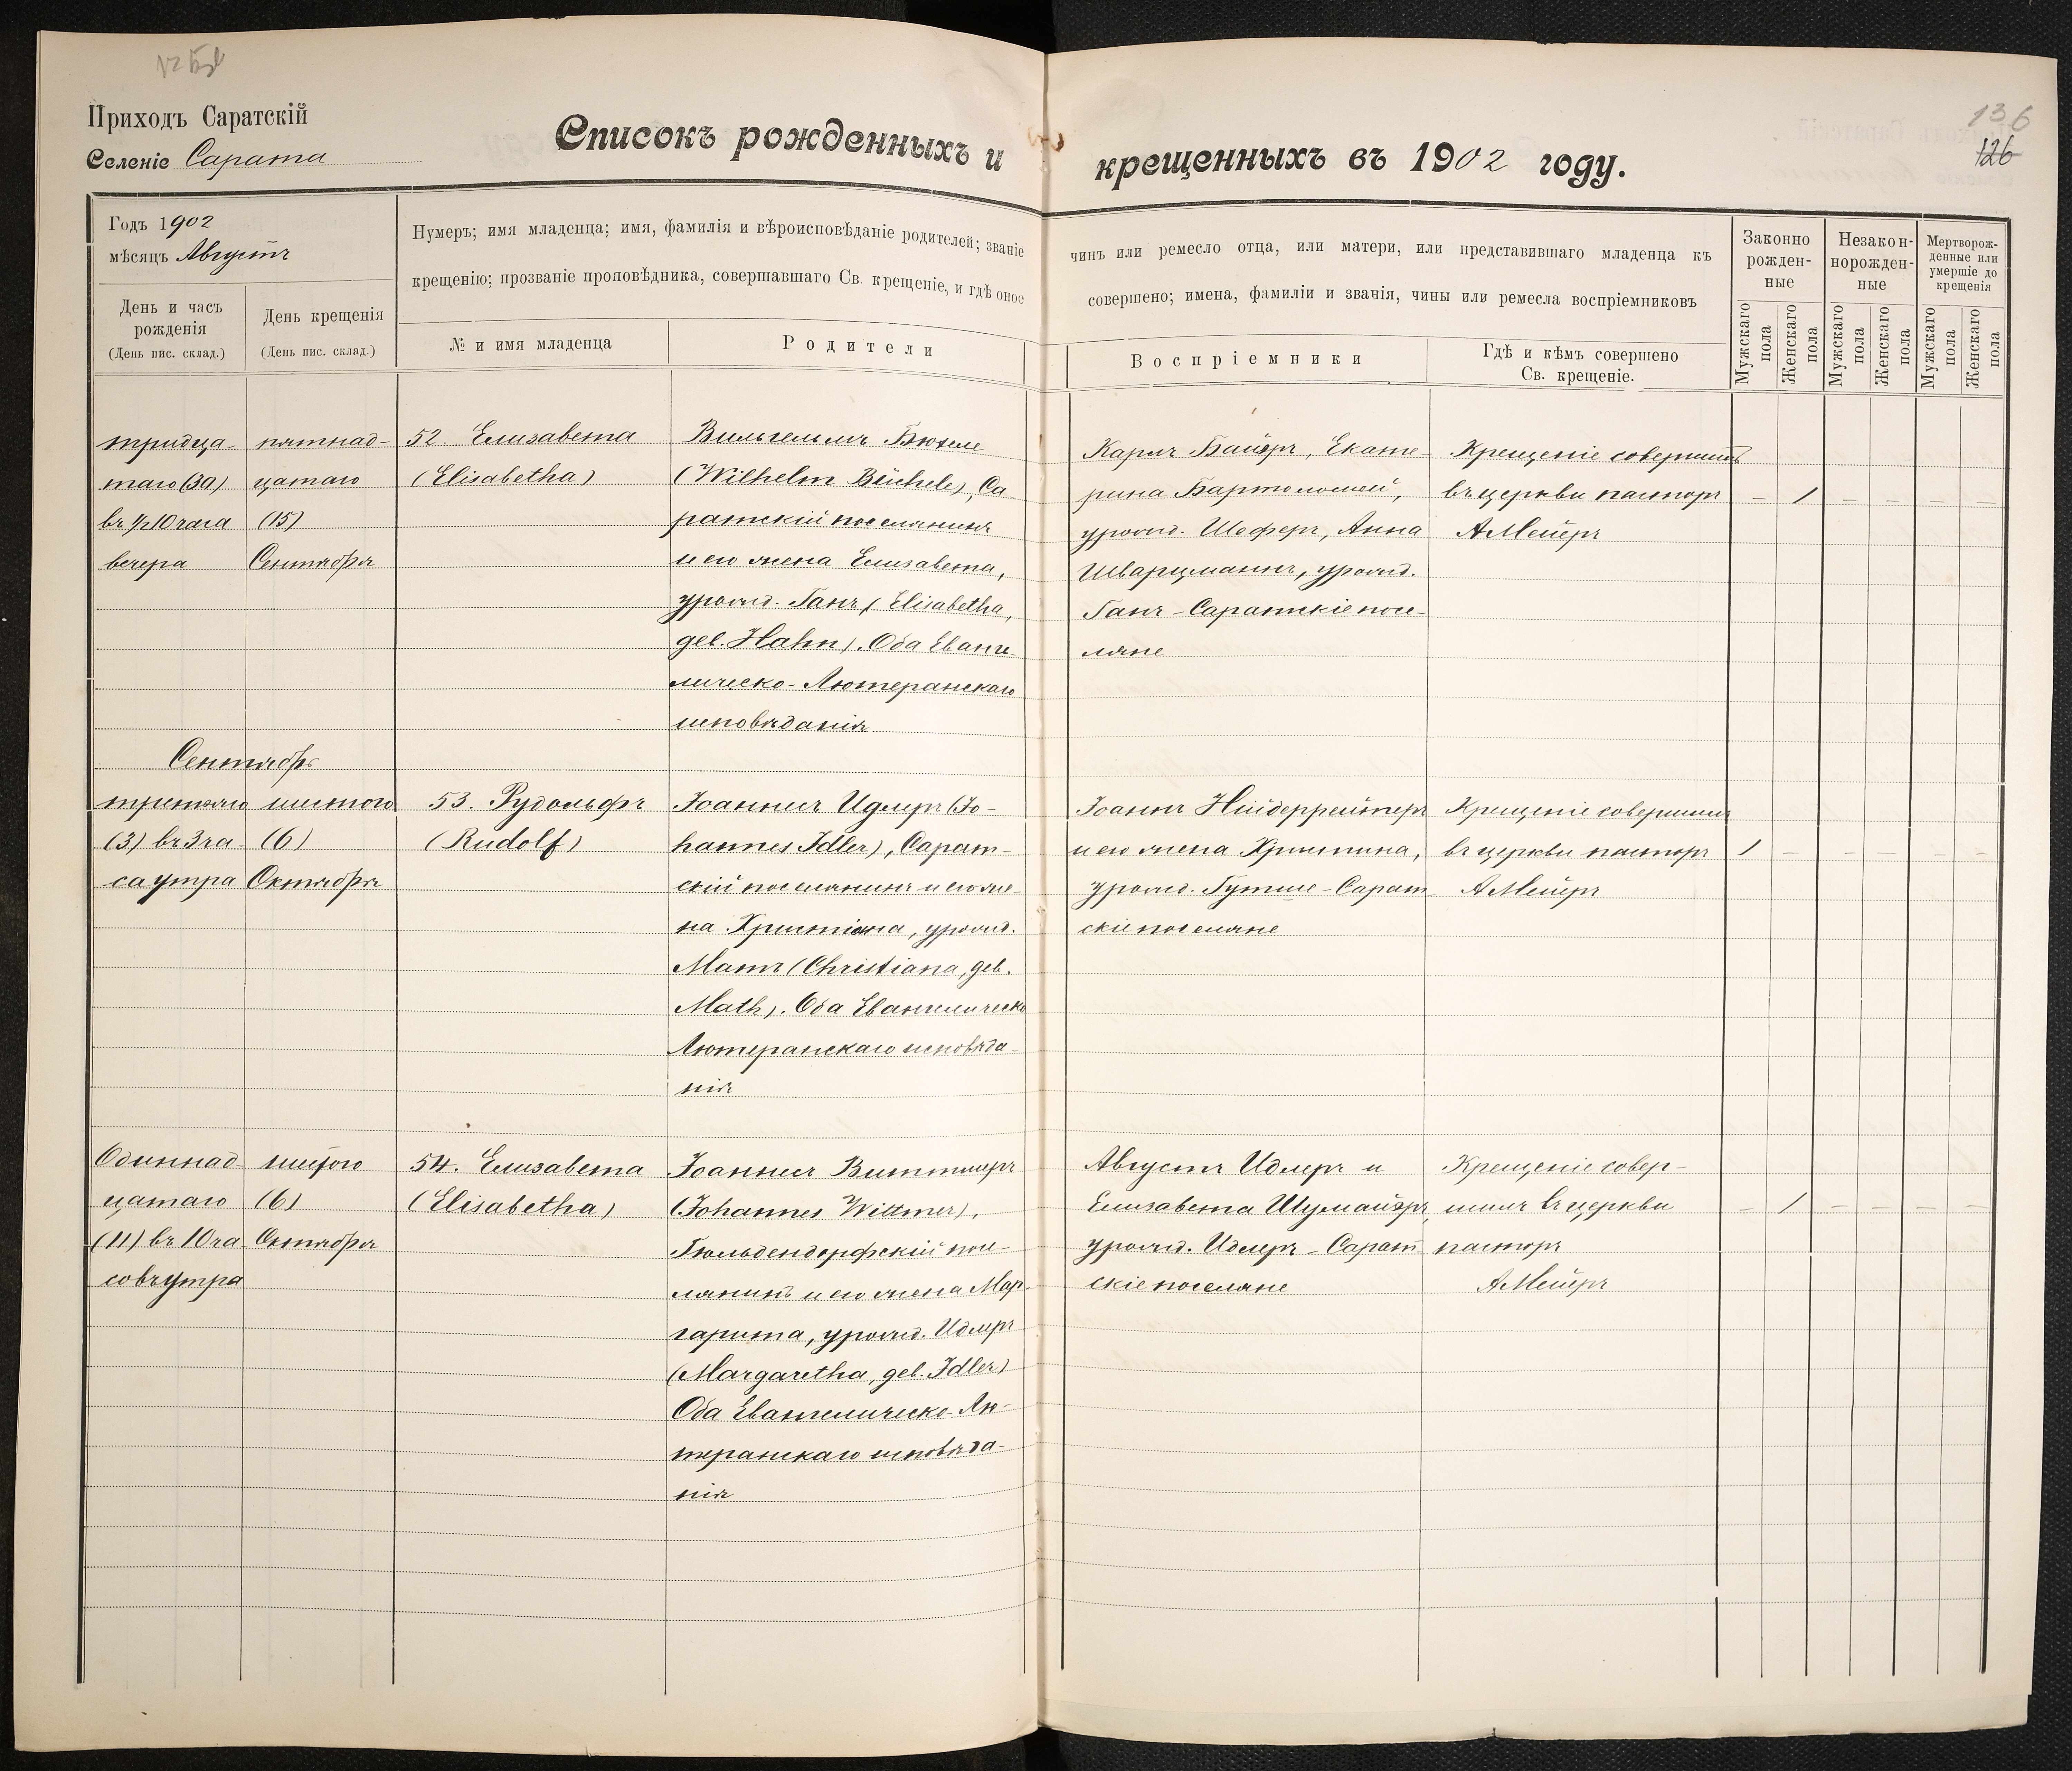 Приходъ Саратскій
Селеніе Сарата
Списокъ рожденныхъ и крещенныхъ въ 1902 году.
136
126
Годъ 1902
мѣсяцъ Августъ
День и часъ
рожденія
(День пис. склад.)
День крещенія
(День пис. склад.)
Нумеръ; имя младенца; имя, фамилія и вѣроисповѣданіе родителей; званіе
крещенію; прозваніе проповѣдника, совершавшаго Св. крещеніе, и гдѣ оное
№ и имя младенца
Родители
чинъ или ремесло отца, или матери, или представившаго младенца къ
совершено; имена, фамиліи и званія, чины или ремесла воспріемниковъ
Воспріемники
Гдѣ и кѣмъ совершено
Св. крещеніе.
Законно
рожден-
ные
Незакон-
норожден-
ные
Мертворож-
денные или
умершіе до
крещенія
Мужскаго
пола
Женскаго
пола
Мужскаго
пола
Женскаго
пола
Мужскаго
пола
Женскаго
пола
тридца-
таго (30)
въ ½10 часа
вечера
пятнад-
цатаго
(15)
Сентября
52. Елизавета
(Elisabetha)
Вильгельмъ Бюхеле
(Wilhelm Büchele), Са
ратскій поселянинъ
и его жена Елизавета,
урожд. Ганъ (Elisabetha,
geb. Hahn). Оба Еванге-
лическо-Лютеранскаго
исповѣданія
Карлъ Байэръ, Екате-
рина Бартоломей,
урожд. Шеферъ, Анна
Шварцманнъ, урожд.
Ганъ - Саратскіе посе-
ляне
Крещеніе совершилъ
въ церкви пасторъ
А Мейеръ
- 1 - - - -
Сентябрь
третьяго
(3) въ 3 ча-
са утра
шестого
(6)
Октября
53. Рудольфъ
(Rudolf)
Іоаннесъ Идлеръ (Jo-
hannes Idler), Сарат-
скій поселянинъ и его же-
на Христіана, урожд.
Матъ (Christiana, geb.
Math). Оба Евангелическо
Лютеранскаго исповѣда-
нія
Іоаннъ Нийдеррейтеръ
и его жена Христина,
урожд. Гутше - Сарат
скіе поселяне
Крещеніе совершилъ
въ церкви пасторъ
А Мейеръ
1 - - - - -
Одиннад
цатаго
(11) въ 10 ча-
совъ утра
шестого
(6)
Октября
54. Елизавета
(Elisabetha)
Іоаннесъ Виттмеръ
(Johannes Wittmer),
Гюльдендорфскій посе-
лянинъ и его жена Мар-
гарита, урожд. Идлеръ
(Margaretha, geb. Idler)
Оба Евангелическо-Лю-
теранскаго исповѣда-
нія
Августъ Идлеръ и
Елизавета Шумайэръ,
урожд. Идлеръ - Сарат
скіе поселяне
Крещеніе совер-
шилъ въ церкви
пасторъ
А Мейеръ
- 1 - - - -